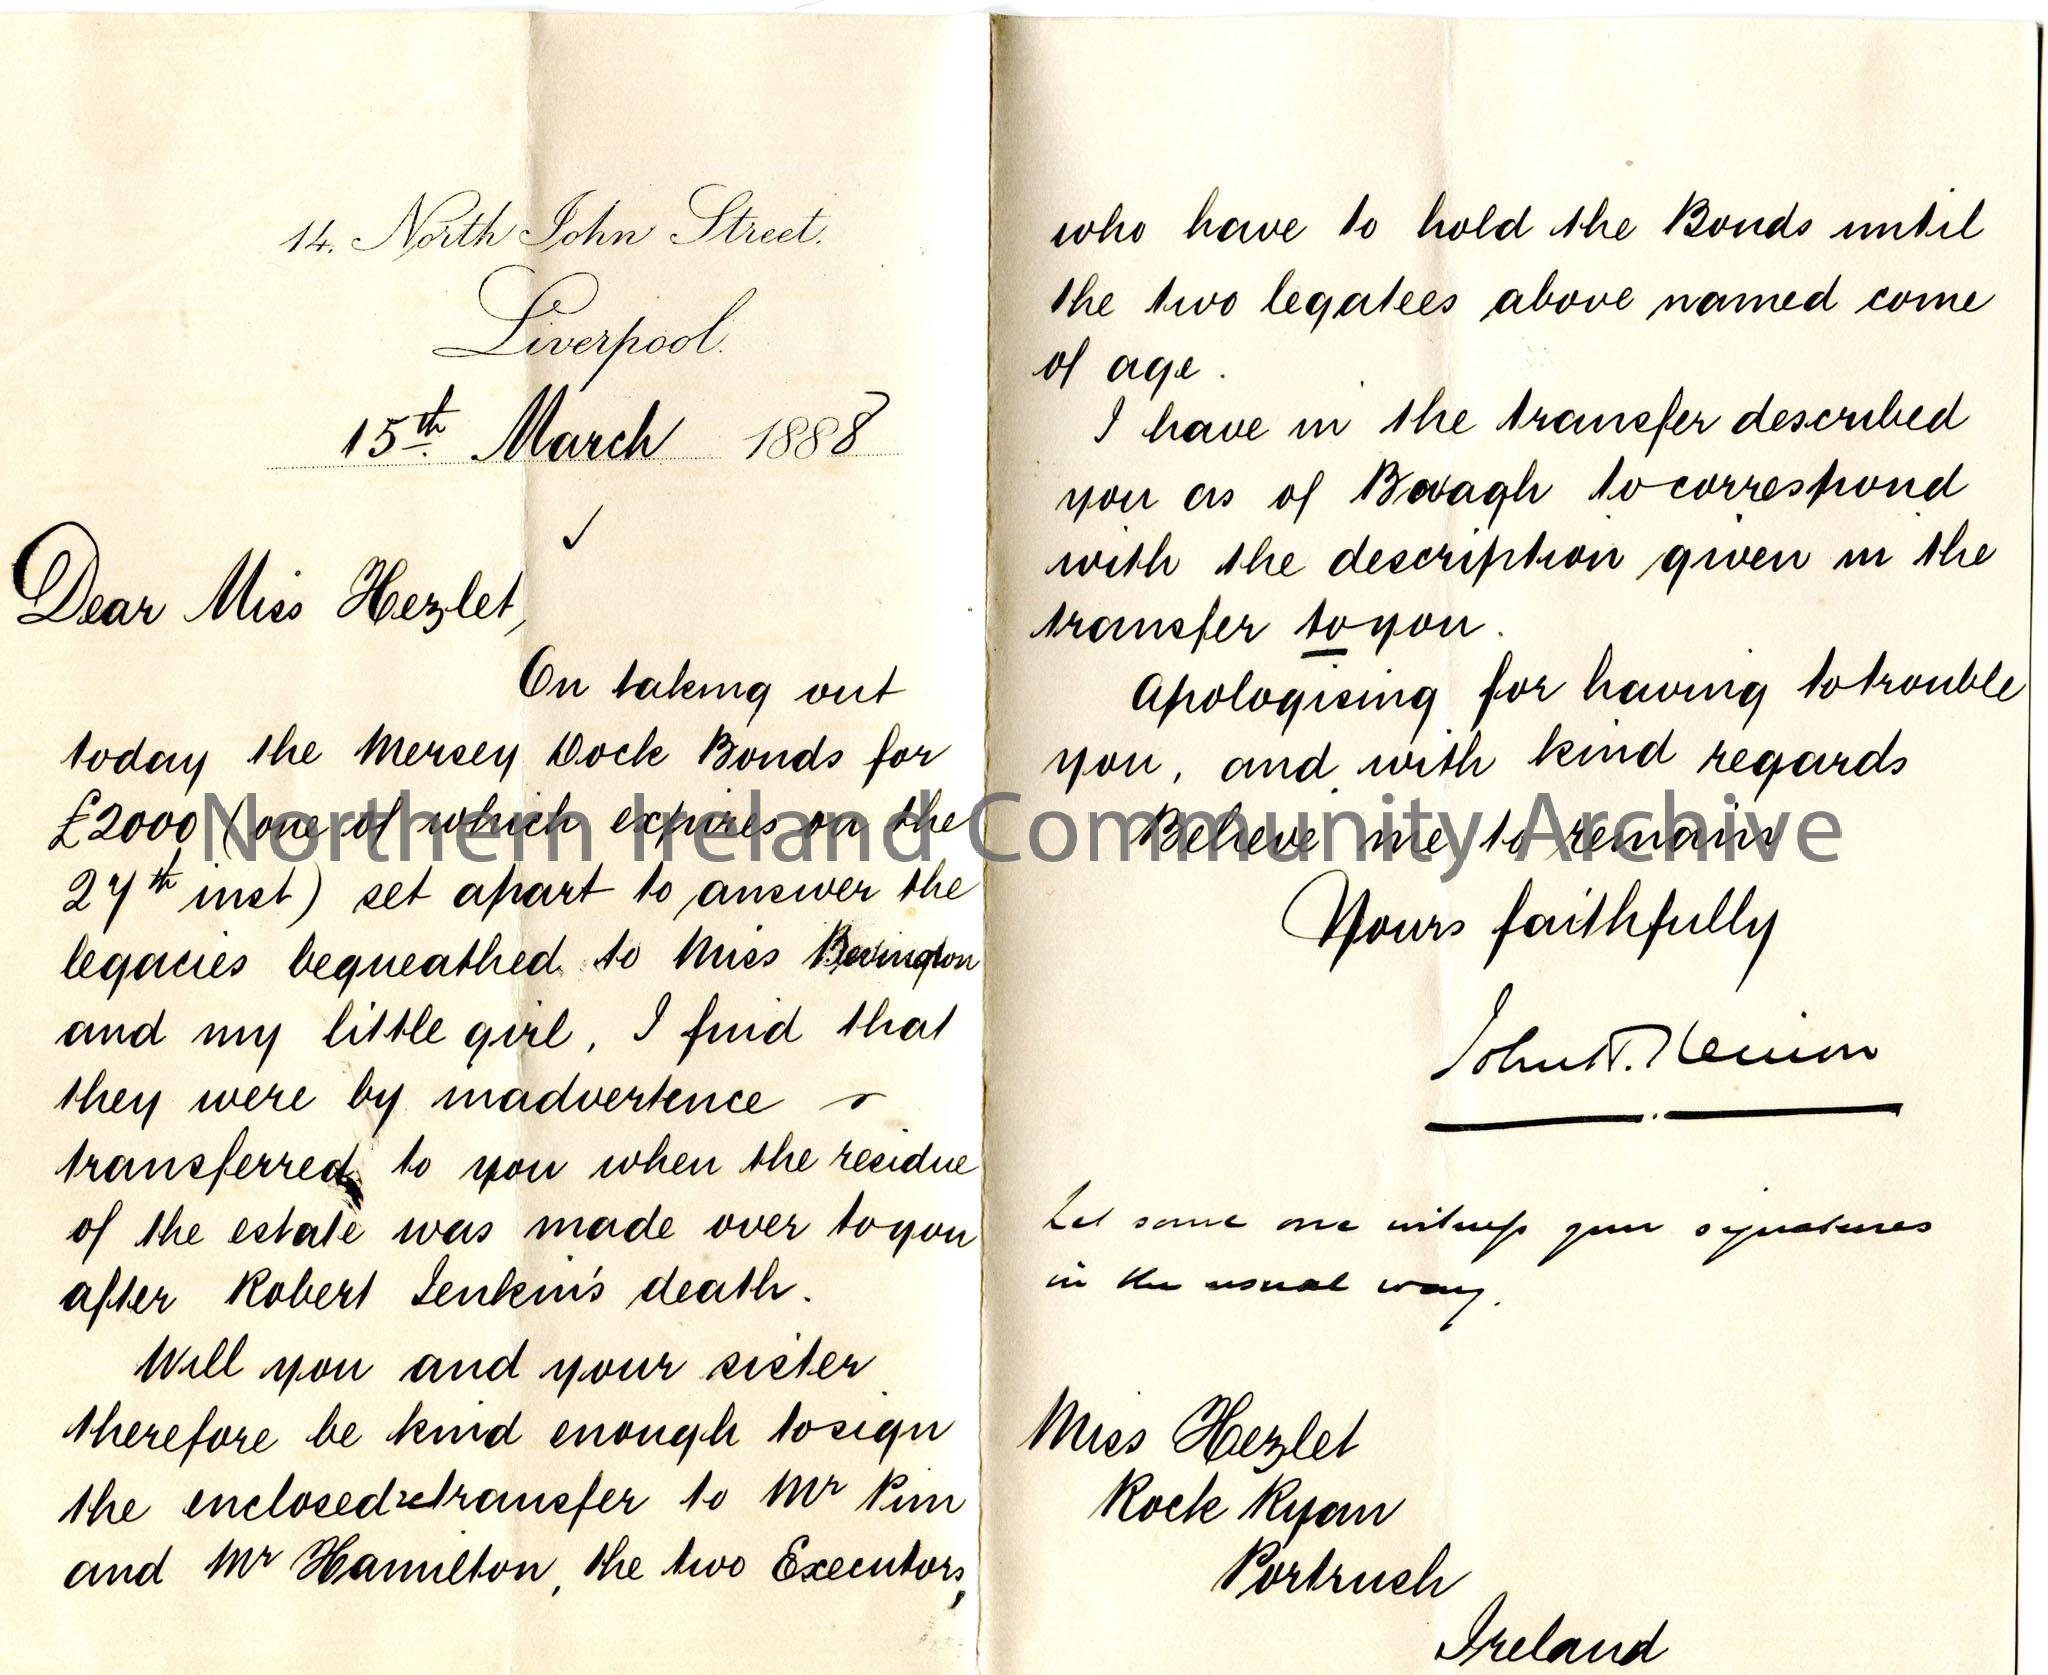 14. North John Street.
Liverpool.
15th March 1888
Dear Miss Hezlet,
On taking out
today the Mersey Dock Bonds for
£2000 (one of which expires on the
27th inst) set apart to answer the
legacies bequeathed to Miss Bevington
and my little girl, I find that
they were by inadvertence
transferred to you when the residue
of the estate was made over to you
after Robert Jenkin's death.
Will you and your sister
therefore be kind enough to sign
the enclosed retransfer to Mr Pim
and Mr Hamilton, the two Executors,
who have to hold the Bonds until
the two legatees above named come
of age.
I have in the transfer described
you as of Bovagh to correspond
with the description given in the
transfer to you.
Apologising for having to trouble
you, and with kind regards
Believe me to remain
Yours faithfully
John
Let some one witness your signatures
in the usual way.
Miss Hezlet
Rock Ryan
Portrush
Ireland
Northern Ireland Community Archive